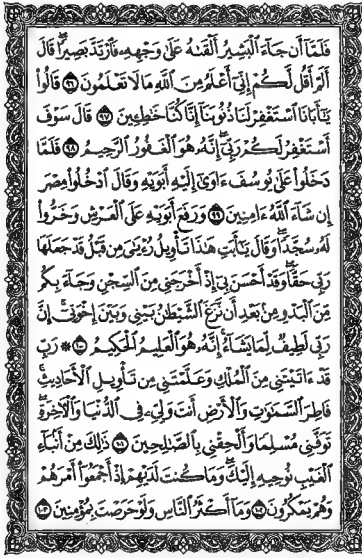 فَلَمَّآ أَن جَآءَ ٱلْبَشِيرُ أَلْقَىٰهُ عَلَىٰ وَجْهِهِۦ فَٱرْتَدَّ بَصِيرًا ۖ قَالَ
أَلَمْ أَقُل لَّكُمْ إِنِّىٓ أَعْلَمُ مِنَ ٱللَّهِ مَا لَا تَعْلَمُونَ ﴿٩٦﴾ قَالُوا۟
يَـٰٓأَبَانَا ٱسْتَغْفِرْ لَنَا ذُنُوبَنَآ إِنَّا كُنَّا خَـٰطِـِٔينَ ﴿٩٧﴾ قَالَ سَوْفَ
أَسْتَغْفِرُ لَكُمْ رَبِّىٓ ۖ إِنَّهُۥ هُوَ ٱلْغَفُورُ ٱلرَّحِيمُ ﴿٩٨﴾ فَلَمَّا
دَخَلُوا۟ عَلَىٰ يُوسُفَ ءَاوَىٰٓ إِلَيْهِ أَبَوَيْهِ وَقَالَ ٱدْخُلُوا۟ مِصْرَ
إِن شَآءَ ٱللَّهُ ءَامِنِينَ ﴿٩٩﴾ وَرَفَعَ أَبَوَيْهِ عَلَى ٱلْعَرْشِ وَخَرُّوا۟
لَهُۥ سُجَّدًا ۖ وَقَالَ يَـٰٓأَبَتِ هَـٰذَا تَأْوِيلُ رُءْيَـٰىَ مِن قَبْلُ قَدْ جَعَلَهَا
رَبِّى حَقًّا ۖ وَقَدْ أَحْسَنَ بِىٓ إِذْ أَخْرَجَنِى مِنَ ٱلسِّجْنِ وَجَآءَ بِكُم
مِّنَ ٱلْبَدْوِ مِنۢ بَعْدِ أَن نَّزَغَ ٱلشَّيْطَـٰنُ بَيْنِى وَبَيْنَ إِخْوَتِىٓ ۚ إِنَّ
رَبِّى لَطِيفٌ لِّمَا يَشَآءُ ۚ إِنَّهُۥ هُوَ ٱلْعَلِيمُ ٱلْحَكِيمُ ﴿١٠٠﴾ ۞ رَبِّ
قَدْ ءَاتَيْتَنِى مِنَ ٱلْمُلْكِ وَعَلَّمْتَنِى مِن تَأْوِيلِ ٱلْأَحَادِيثِ ۚ
فَاطِرَ ٱلسَّمَـٰوَٰتِ وَٱلْأَرْضِ أَنتَ وَلِىِّۦ فِى ٱلدُّنْيَا وَٱلْـَٔاخِرَةِ ۖ
تَوَفَّنِى مُسْلِمًا وَأَلْحِقْنِى بِٱلصَّـٰلِحِينَ ﴿١٠١﴾ ذَٰلِكَ مِنْ أَنۢبَآءِ
ٱلْغَيْبِ نُوحِيهِ إِلَيْكَ ۖ وَمَا كُنتَ لَدَيْهِمْ إِذْ أَجْمَعُوٓا۟ أَمْرَهُمْ
وَهُمْ يَمْكُرُونَ ﴿١٠٢﴾ وَمَآ أَكْثَرُ ٱلنَّاسِ وَلَوْ حَرَصْتَ بِمُؤْمِنِينَ ﴿١٠٣﴾